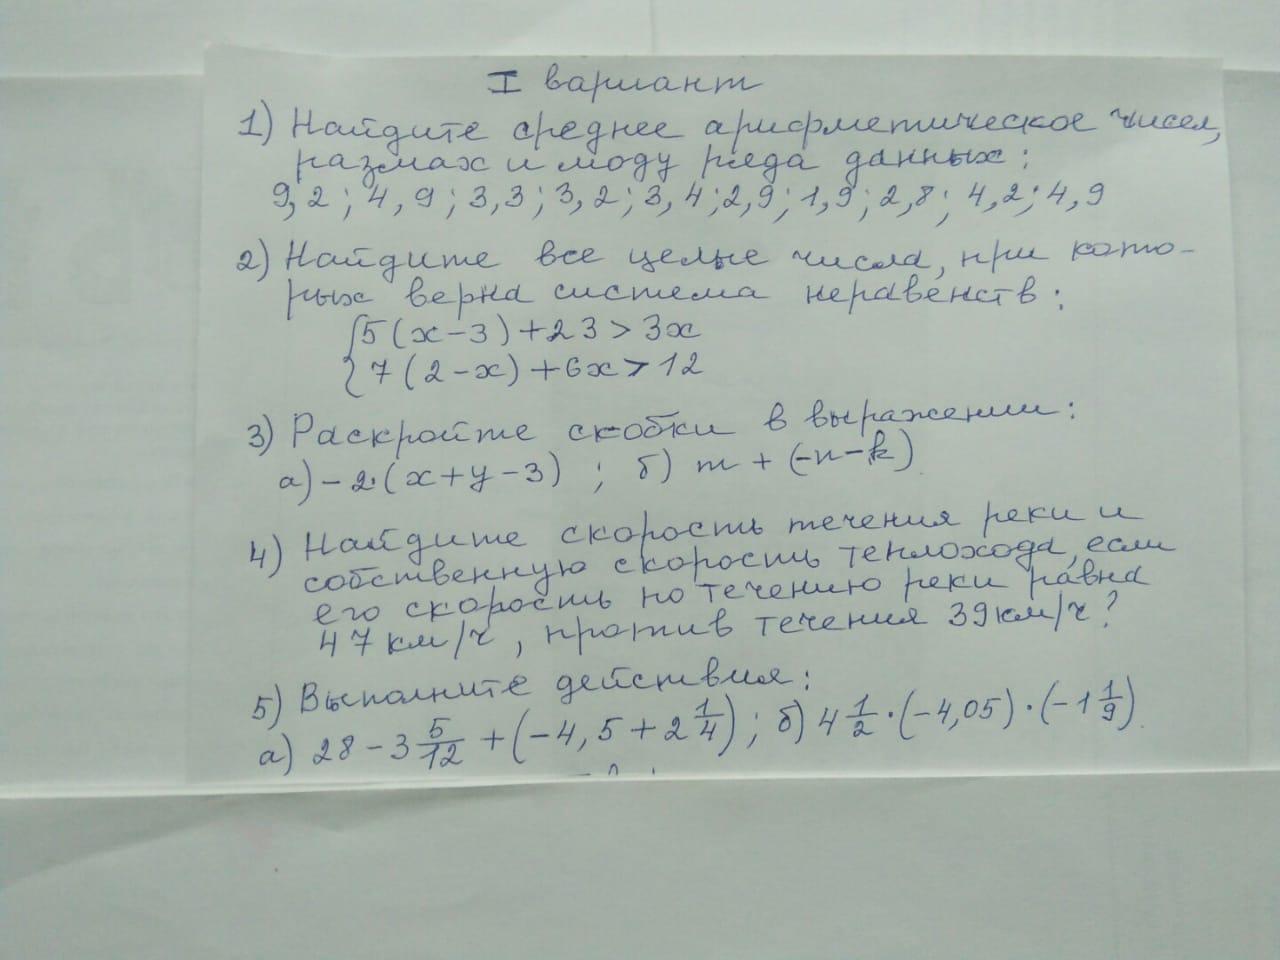 I вариант
1) Найдите среднее арифметическое чисел,
размах и моду ряда данных:
9,2; 4,9; 3,3; 3,2; 3,4; 2,9; 1,9; 2,8; 4,2; 4,9
2) Найдите все целые числа, при кото-
рых верна система неравенств:
{5(x-3)+23>3x
7(2-x)+6x>12
3) Раскройте скобки в выражении:
а) -2·(x+y-3); б) m+(-n-k)
4) Найдите скорость течения реки и
собственную скорость теплохода, если
его скорость по течению реки равна
47 км/ч, против течения 39 км/ч?
5) Выполните действия:
а) 28 - 3 5/12 + (-4,5 + 2 1/4); б) 4 1/2 · (-4,05) · (-1 1/9)